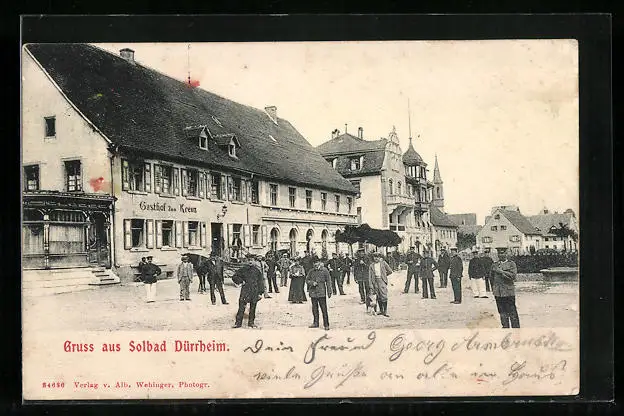 Gasthof zum Kreuz
Gruss aus Solbad Dürrheim.
Dein Freund Georg
viele Grüße an alle im Haus
54686 Verlag v. Alb. Wehinger, Photogr.